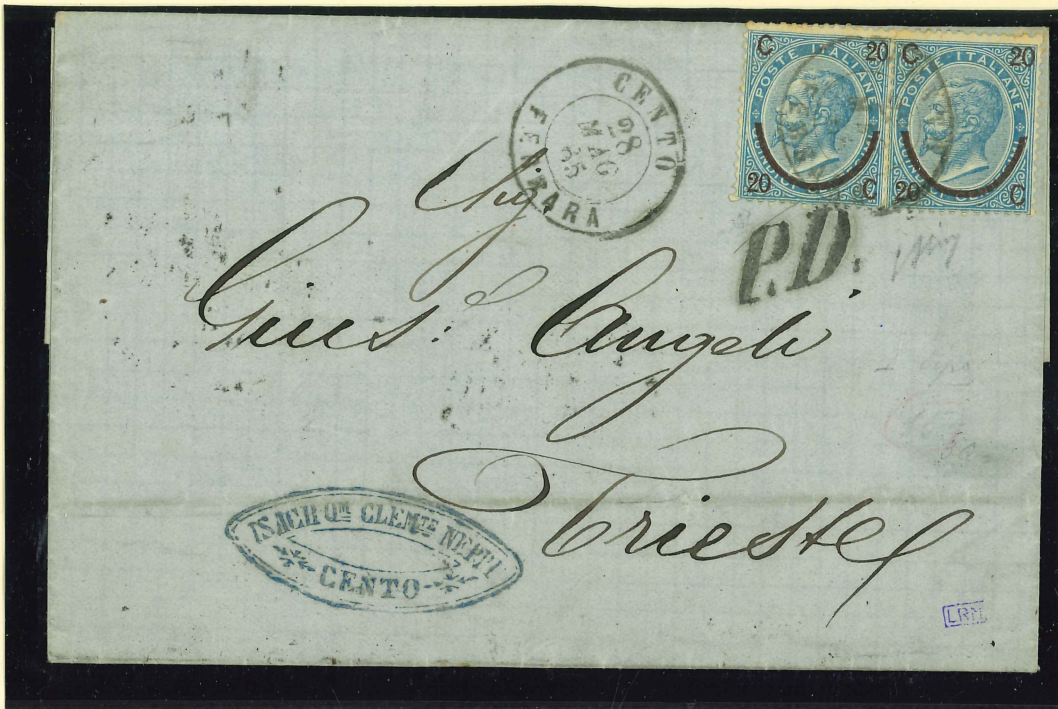 C 20 C 20
POSTE ITALIANE POSTE ITALIANE
20 C 20 C
CENTO
28
MAG
65
FERRARA
P.D.
Sig
Gius. Angeli
Trieste
ISACH Qm CLEMte NEPPI
CENTO
LRM